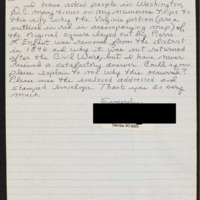 I have asked people in Washington
D.C. many times on my numerous trips to
this city why the Virginia portion (area
outlined in red in accompanying map) of
the original square layed out by Pierre
L'Enfant was removed from the district
in 1846 and why it was not returned
after the Civil War, but I have never
received a satisfactory answer. Could you
please explain to me why this occurred?
Please use the enclosed addressed and
stamped envelope. Thank you so very
much.
Sincerely,